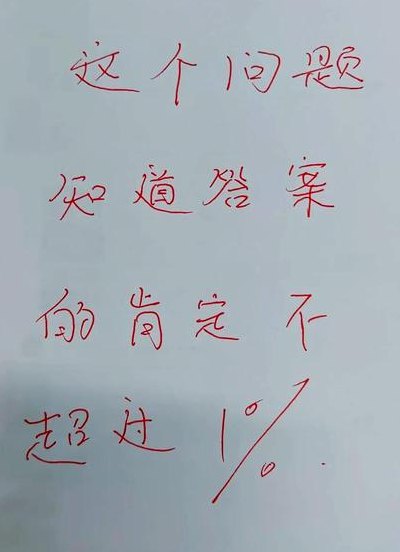 这个问题
知道答案
的肯定不
超过1%.